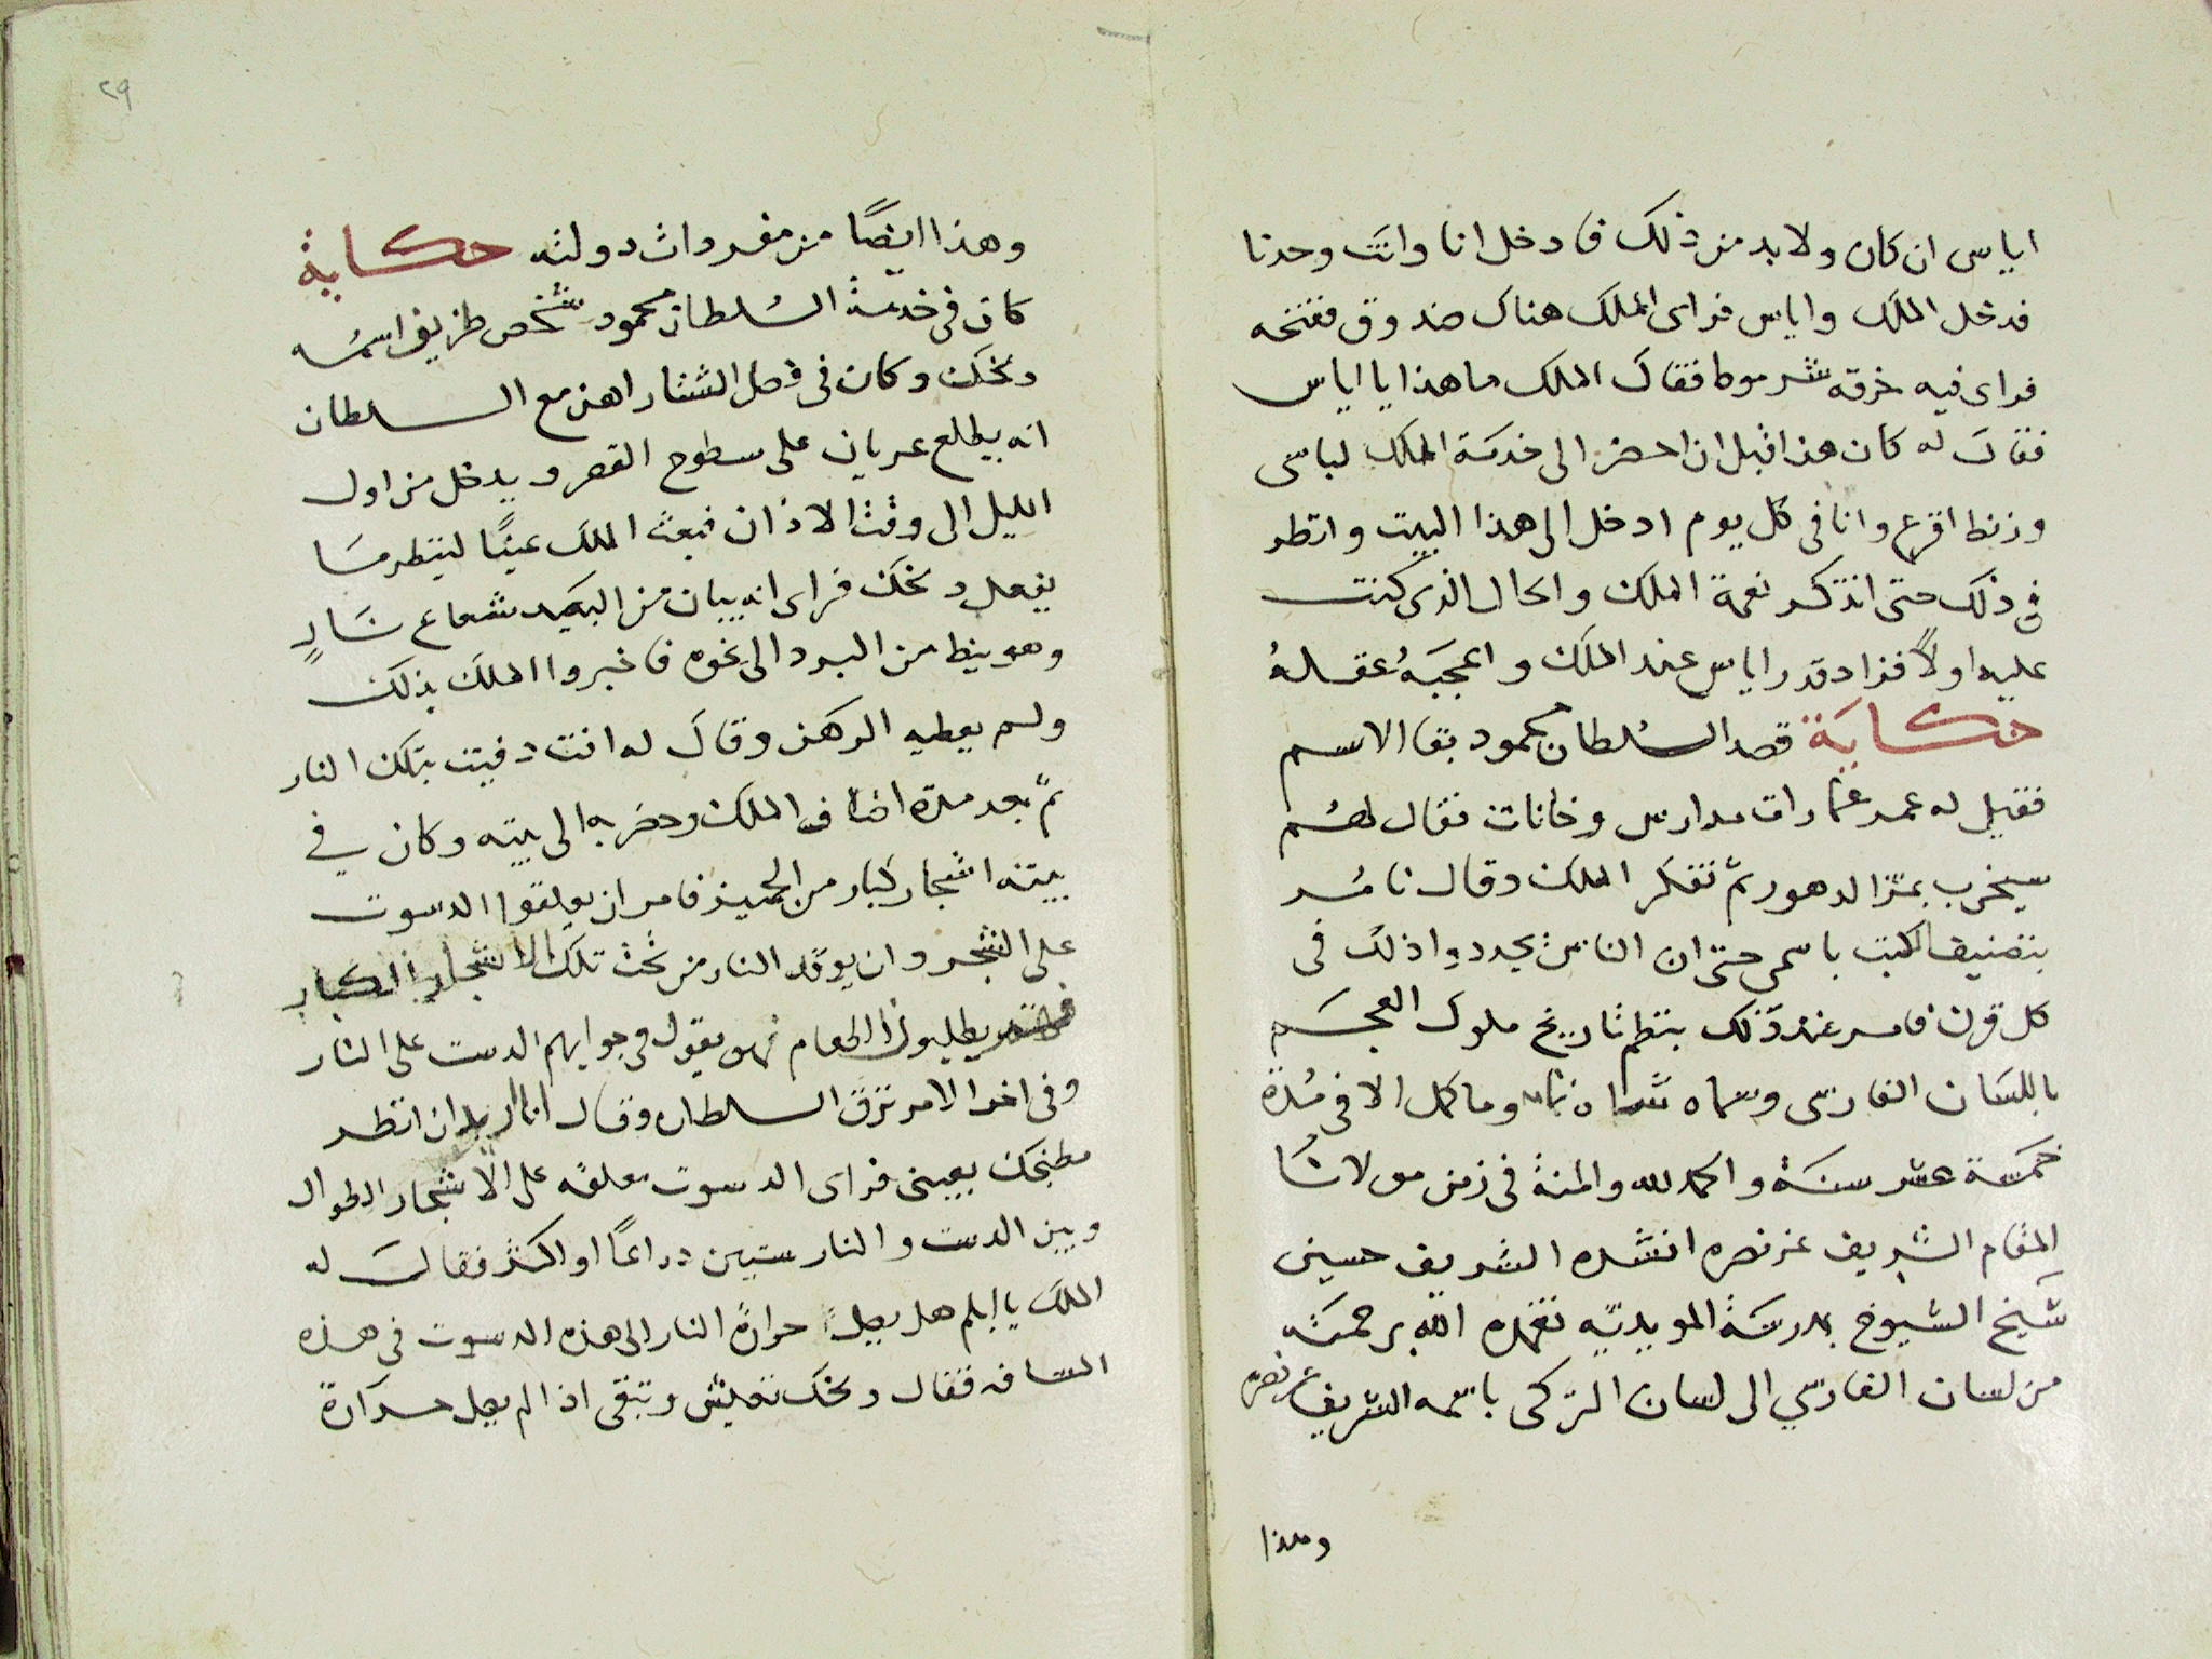 اياس ان كان ولا بد من ذلك فادخل انا وانت وحدنا
فدخل الملك واياس فراى الملك هناك صندوق ففتحه
فراى فيه خرقه شرموطا فقال الملك ما هذا يا اياس
فقال له كان هذا قبل ان احضر الى خدمة الملك لباسى
وزنط اقرع وانا فى كل يوم ادخل الى هذا البيت وانظر
فى ذلك حتى اتذكر نعمة الملك والحال الذى كنت
عليه اولاً فزاد قدر اياس عند الملك واعجبَهُ عقلهُ
حكاية قصد السلطان محمود بقا الاسم
فقيل له عمر عمارات مدارس وخانات فقال لهم
سيخرب بمر الدهور ثم تفكر الملك وقال نامر
بتصنيف الكتب باسمى حتى ان الناس يجددوا ذلك فى
كل قرن فامر عند ذلك بنظم تاريخ ملوك العجم
باللسان الفارسى وسماه شاه نامه وما كمل الا فى مدة
خمسة عشر سنة والحمد لله والمنة فى زمن مولانا
المقام الشريف عز نصره انشده الشريف حسين
شيخ الشيوخ بمدرسة المويديّه تغمده الله برحمته
من لسان الفارسي الى لسان التركى باسمه الشريف عز نصره
وهذا
٢٩
وهذا ايضًا من مفردات دولته حكاية
كان فى خدمة السلطان محمود شخص ظريف اسمه
دلخك وكان فى فصل الشتا راهن مع السلطان
انه يطلع عريان على سطوح القصر ويدخل من اول
الليل الى وقت الاذان فبعث الملك عينًا لينظر ما
يفعل دلخك فراى انه يبان من البعيد شعاع نارٍ
وهو ينط من البرد الى نحوه فاخبروا الملك بذلك
ولم يعطيه الرهن وقال له انت دفيت بتلك النار
ثم بعد مدة اضاف الملك وحضر به الى بيته وكان في
بيته اشجار كبار من الجميز فامر ان يعلقوا الدسوت
على الشجر وان يوقد النار من تحت تلك الاشجار الكبار
يطلبون الطعام فهو يقول فى جوابهم الدست على النار
وفى اخر الامر نزق السلطان وقال انا اريد ان انظر
مطبخك بعينى فراى الدسوت معلقه على الاشجار الطوال
وبين الدست والنار ستين دراعًا او اكثر فقال له
الملك يا ابلم هل يصل حرارة النار الى هذه الدسوت فى هذه
المسافه فقال دلخك تعيش وتبقى اذا لم يصل حرارة